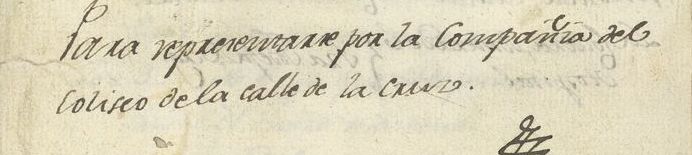 Para representarse por la Compañia del
Coliseo de la calle de la Cruz.